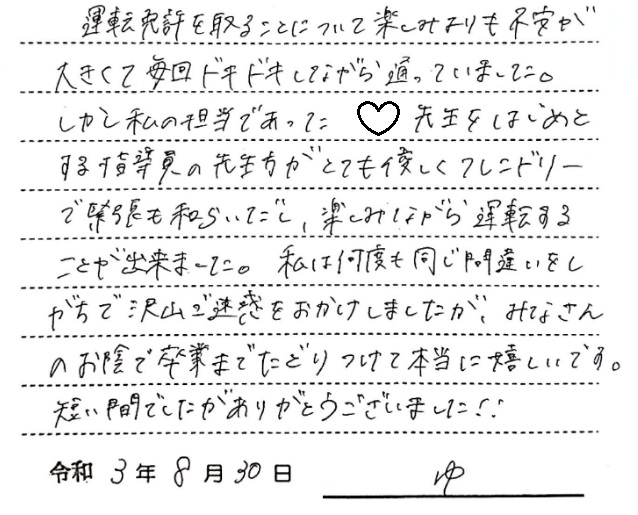 運転免許を取ることについて楽しみよりも不安が
大きくて毎回ドキドキしながら通っていました。
しかし私の担当であった ♡ 先生をはじめと
する指導員の先生方がとても優しくフレンドリー
で緊張も和らいだし、楽しみながら運転する
ことが出来ました。 私は何度も同じ間違いをし
がちで沢山ご迷惑をおかけしましたが、みなさん
のお陰で卒業までたどりつけて本当に嬉しいです。
短い間でしたがありがとうございました!!
令和 3 年 8 月 30 日 ゆ